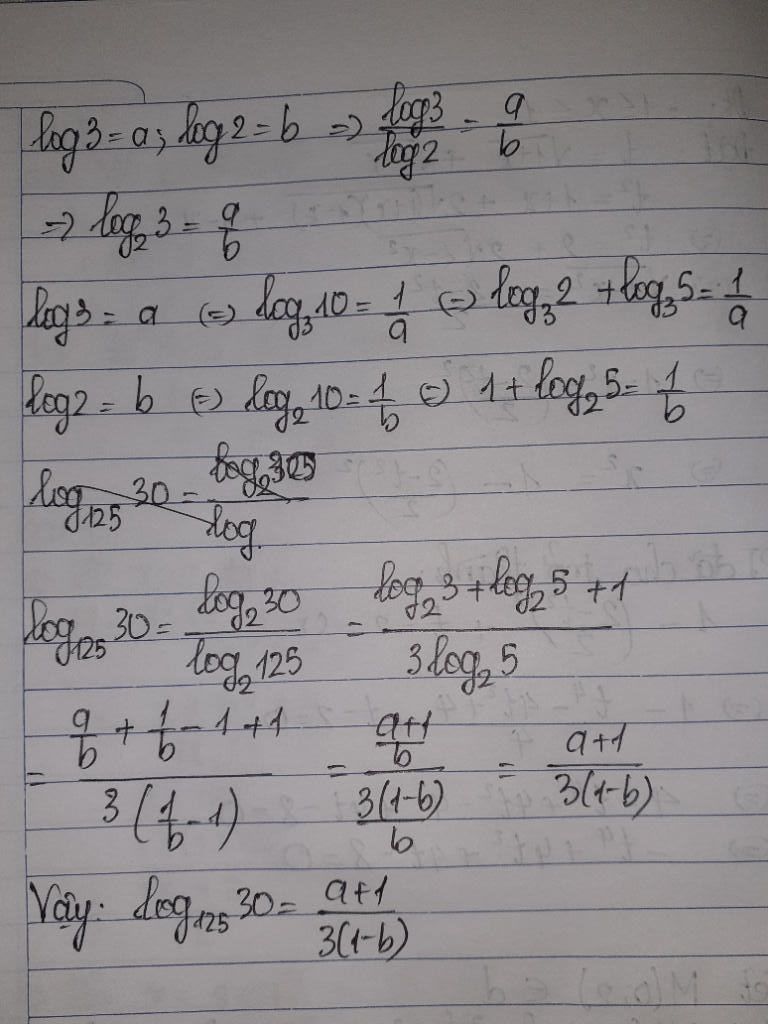 log3 = a; log2 = b => log3/log2 = a/b
=> log₂3 = a/b
log3 = a <=> log₃10 = 1/a <=> log₃2 + log₃5 = 1/a
log2 = b <=> log₂10 = 1/b <=> 1 + log₂5 = 1/b
log₁₂₅30 = log₂30/log₂125 = (log₂3 + log₂5 + 1)/(3log₂5)
= (a/b + 1/b - 1 + 1)/(3(1/b - 1)) = ((a+1)/b)/(3(1-b)/b) = (a+1)/(3(1-b))
Vậy: log₁₂₅30 = (a+1)/(3(1-b))